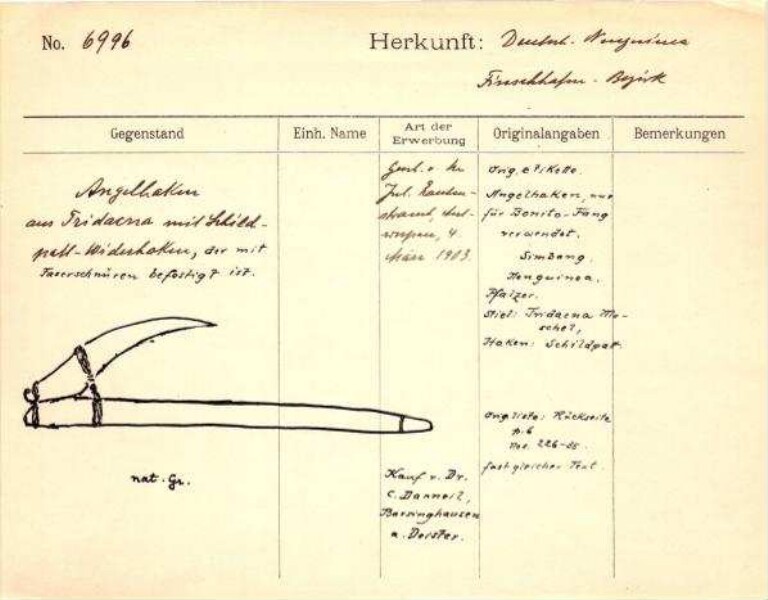 No. 6996
Herkunft: Deutsch. Neuguinea
Finschhafen - Bezirk
Gegenstand
Einh. Name
Art der Erwerbung
Originalangaben
Bemerkungen
Angelhaken
aus Tridacna mit Schild-
patt-Widerhaken, der mit
Faserschnüren befestigt ist.
nat. Gr.
Gesch. v. Hr
Jul.
4.
März 1903.
Kauf v. Dr.
C. Danneil,
Barsinghausen
a. Deister.
Orig. etikette.
Angelhaken, nur
für Bonito-Fang
verwendet.
Simbang.
Neuguinea.
Pfalzer.
Stiel: Tridacna Mu-
schel,
Haken: Schildpatt.
Orig. liste: Rückseite
p. 6
Nos. 226-
fast gleicher Text.